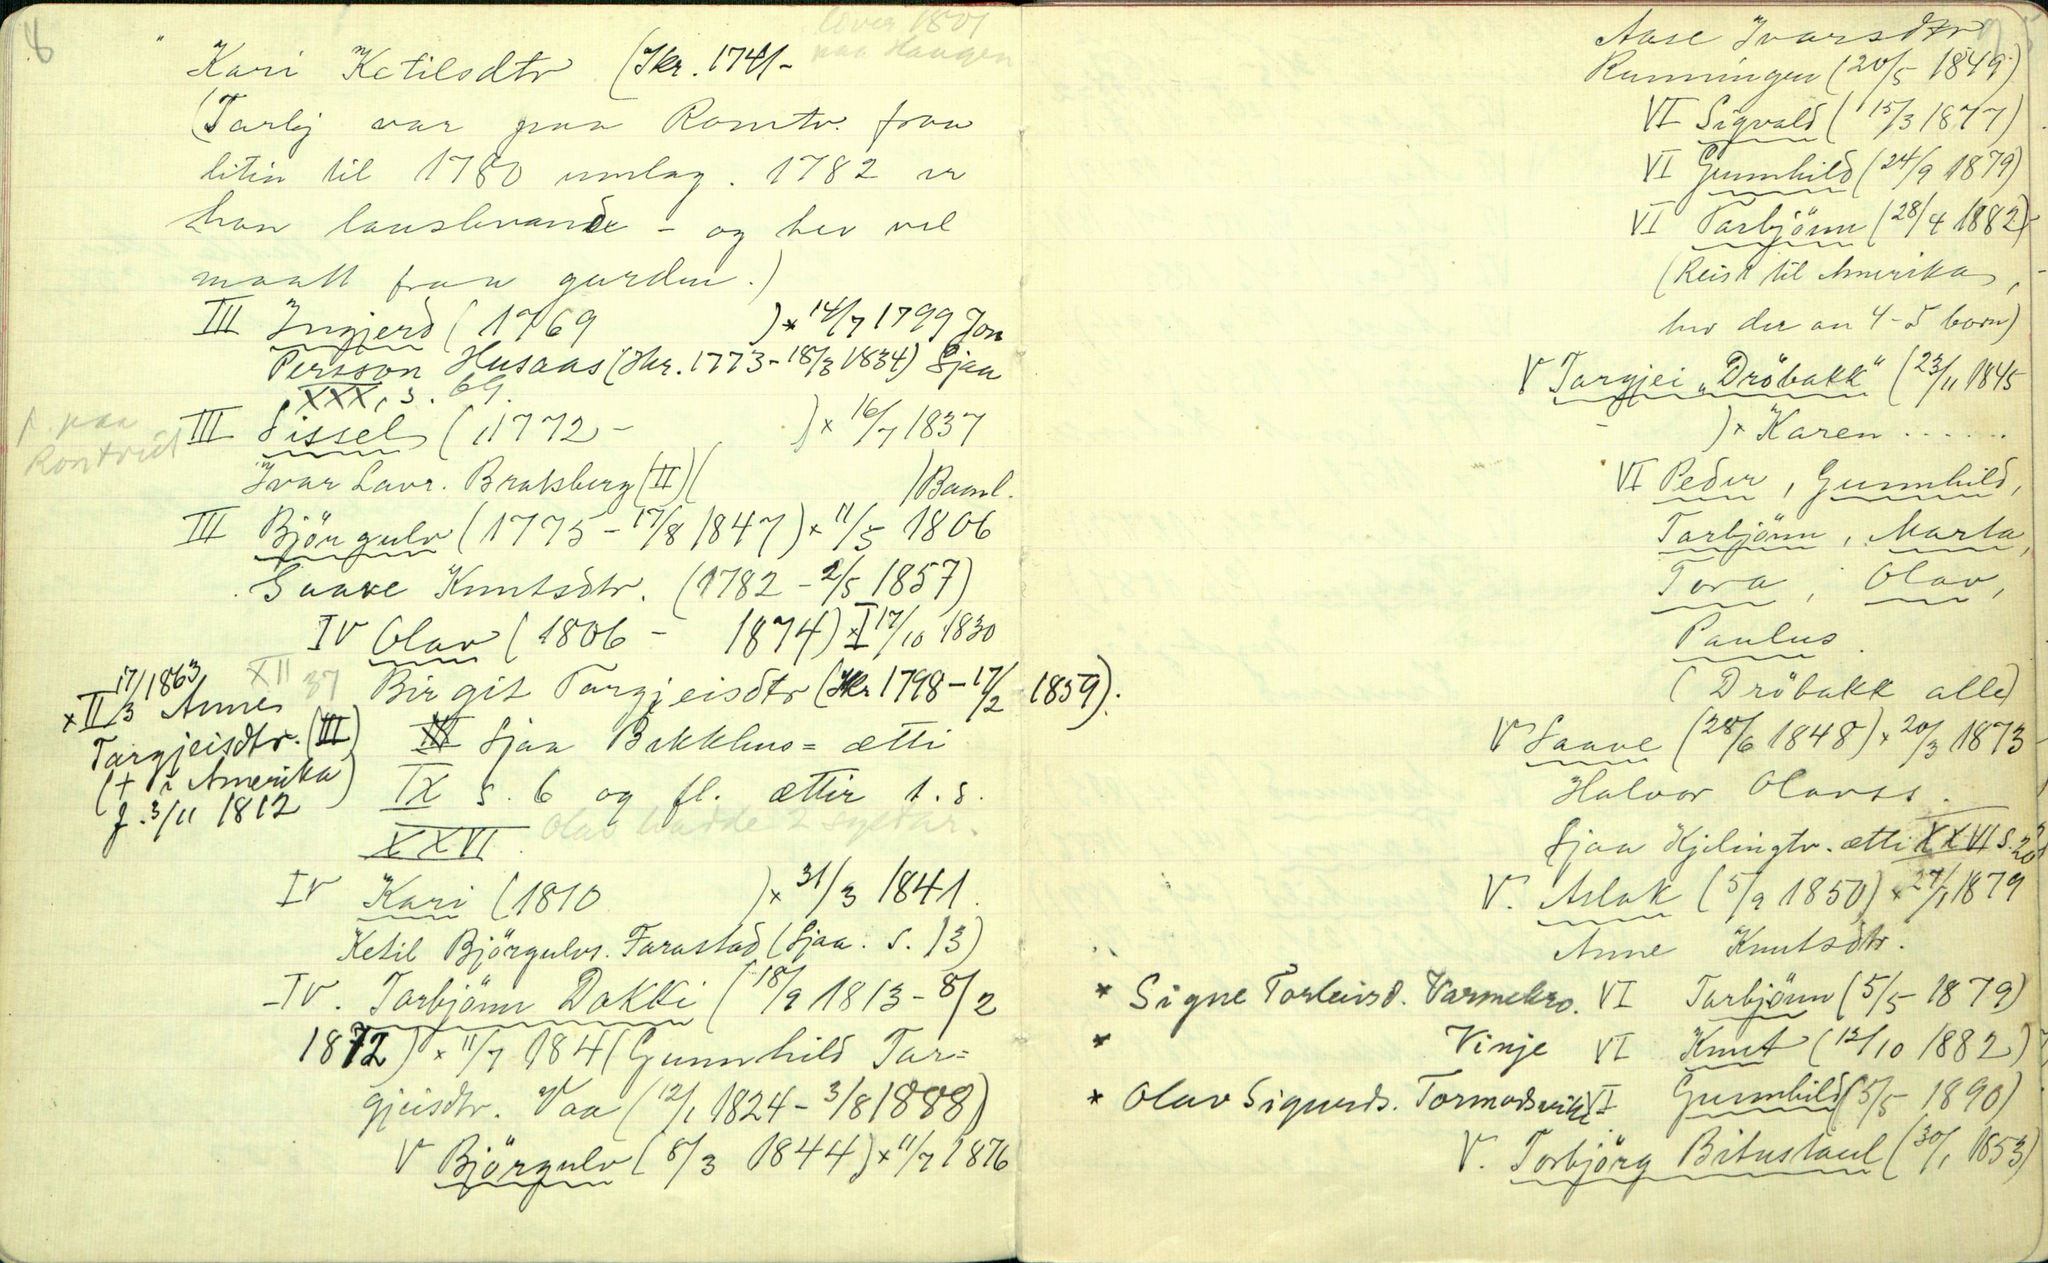 8
Lever 1801
paa Haugen
" Kari Ketilsdtr (Ikr. 1741-
(Tarbj var paa Romtv. fraa
litin til 1780 umlag. 1782 er
han lauslevande - og hev vel
maatt fraa garden.)
III Ingjerd (1769 )x 14/7 1799 Jon
Persson Husaas (Ikr. 1773-18/3 1834) Sjaa
XXX, s. 69.
f. paa
Romtveit
III Sissel (1772 - )x 16/7 1837
Ivar Lavr. Bratsberg (II) ( ) Baml.
III Björgulv (1775 - 17/8 1847) x 11/5 1806
Saave Knutsdtr. (1782 - 2/5 1857)
IV Olav (1806 - 1874) xI 17/10 1830
XII 37 Birgit Targjeisdtr (Ikr 1798 - 17/2 1859).
xII 17/3 1863 Anne
Targjeisdtr. (III)
(+ i Amerika)
f. 3/11 1812
Sjaa Bekkhus= ætti
IX s. 6 og fl. ættir t. s.
XXVI. Olav hadde 2 systkr.
IV Kari (1810 )x 31/3 1841.
Ketil Björgulvs. Farastad (sjaa. s. 13)
-IV. Tarbjönn Dokki (18/9 1813 - 8/2
1872) x 11/7 1841 Gunnhild Tar=
gjeisdtr. Vaa (12/1 1824 - 3/8 1888)
V Björgulv (8/3 1844) x 11/7 1876
9
Aase Ivarsdtr
Runningen (20/5 1849)
VI Sigvald (15/3 1877)
VI Gunnhild (24/9 1879)
VI Tarbjönn (28/4 1882)
(Reist til Amerika,
hev der an 4-5 born)
V Targjei "Dröbakk" (23/11 1845
- )x Karen ......
VI Peder, Gunnhild,
Tarbjönn, Marta,
Tora, Olav,
Paulus.
(Dröbakk alle)
V Saave (28/6 1848) x 20/3 1873
Halvor Olavss.
Sjaa Kjilingtv. ætti XXVI s. 20
V. Aslak (5/9 1850) x 27/1 1879
Anne Knutsdtr.
* Signe Torleivsd. VI Tarbjönn (5/5 1879)
* Vinje VI Knut (12/10 1882)
* Olav Sigurds. Tormodsvik VI Gunnhild (5/5 1890)
V. Torbjörg Bitustaul (30/1 1853)